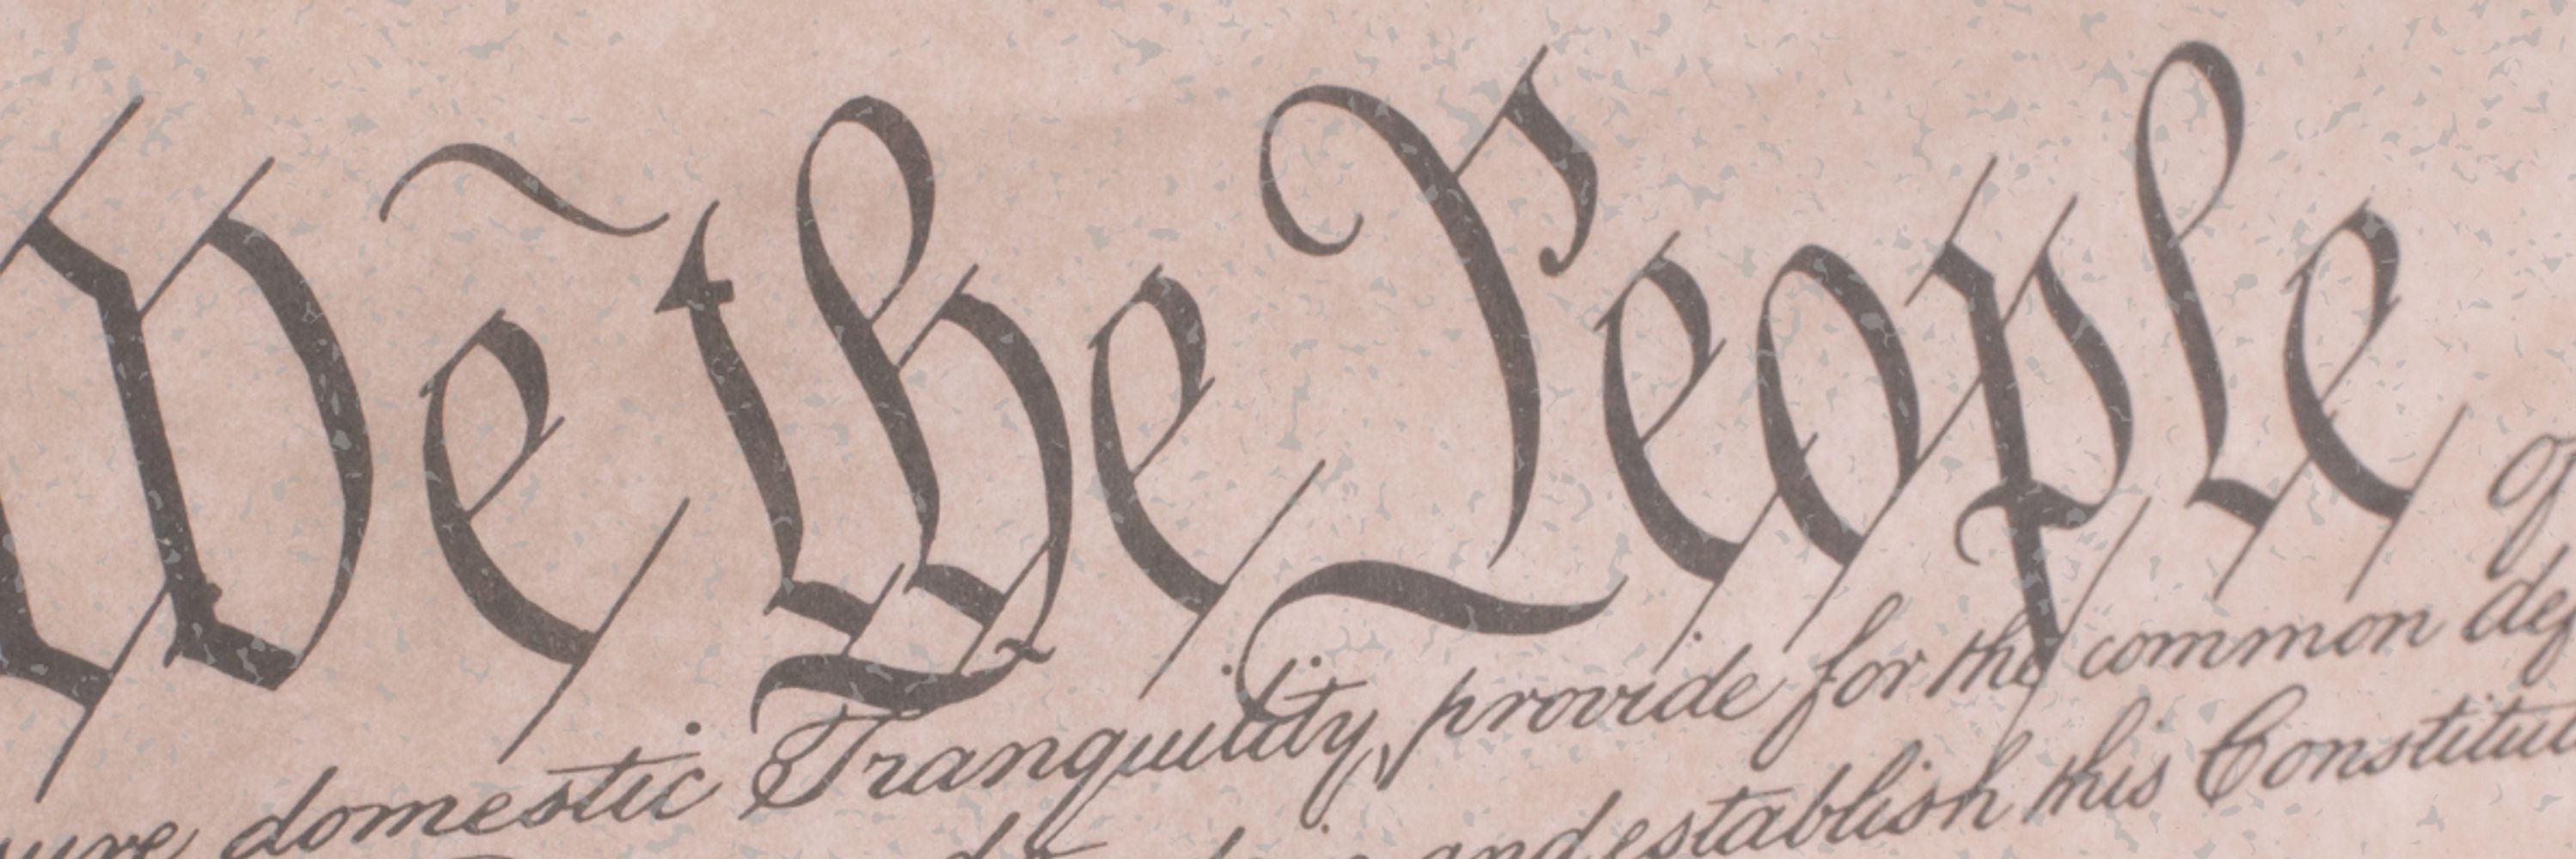 We the People of
domestic Tranquility, provide for the common def
and establish this Constitut